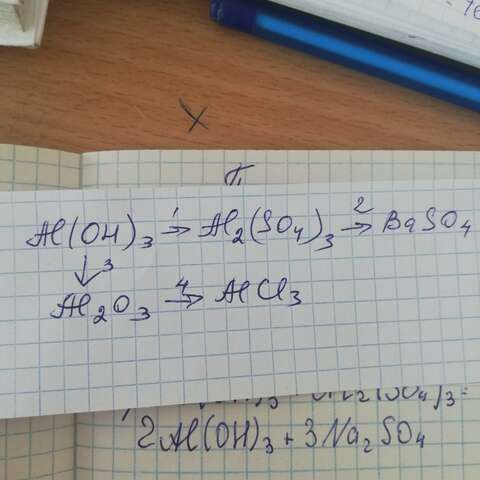 Al(OH)₃ →¹ Al₂(SO₄)₃ →² BaSO₄
↓3
Al₂O₃ →⁴ AlCl₃
2Al(OH)₃ + 3Na₂SO₄